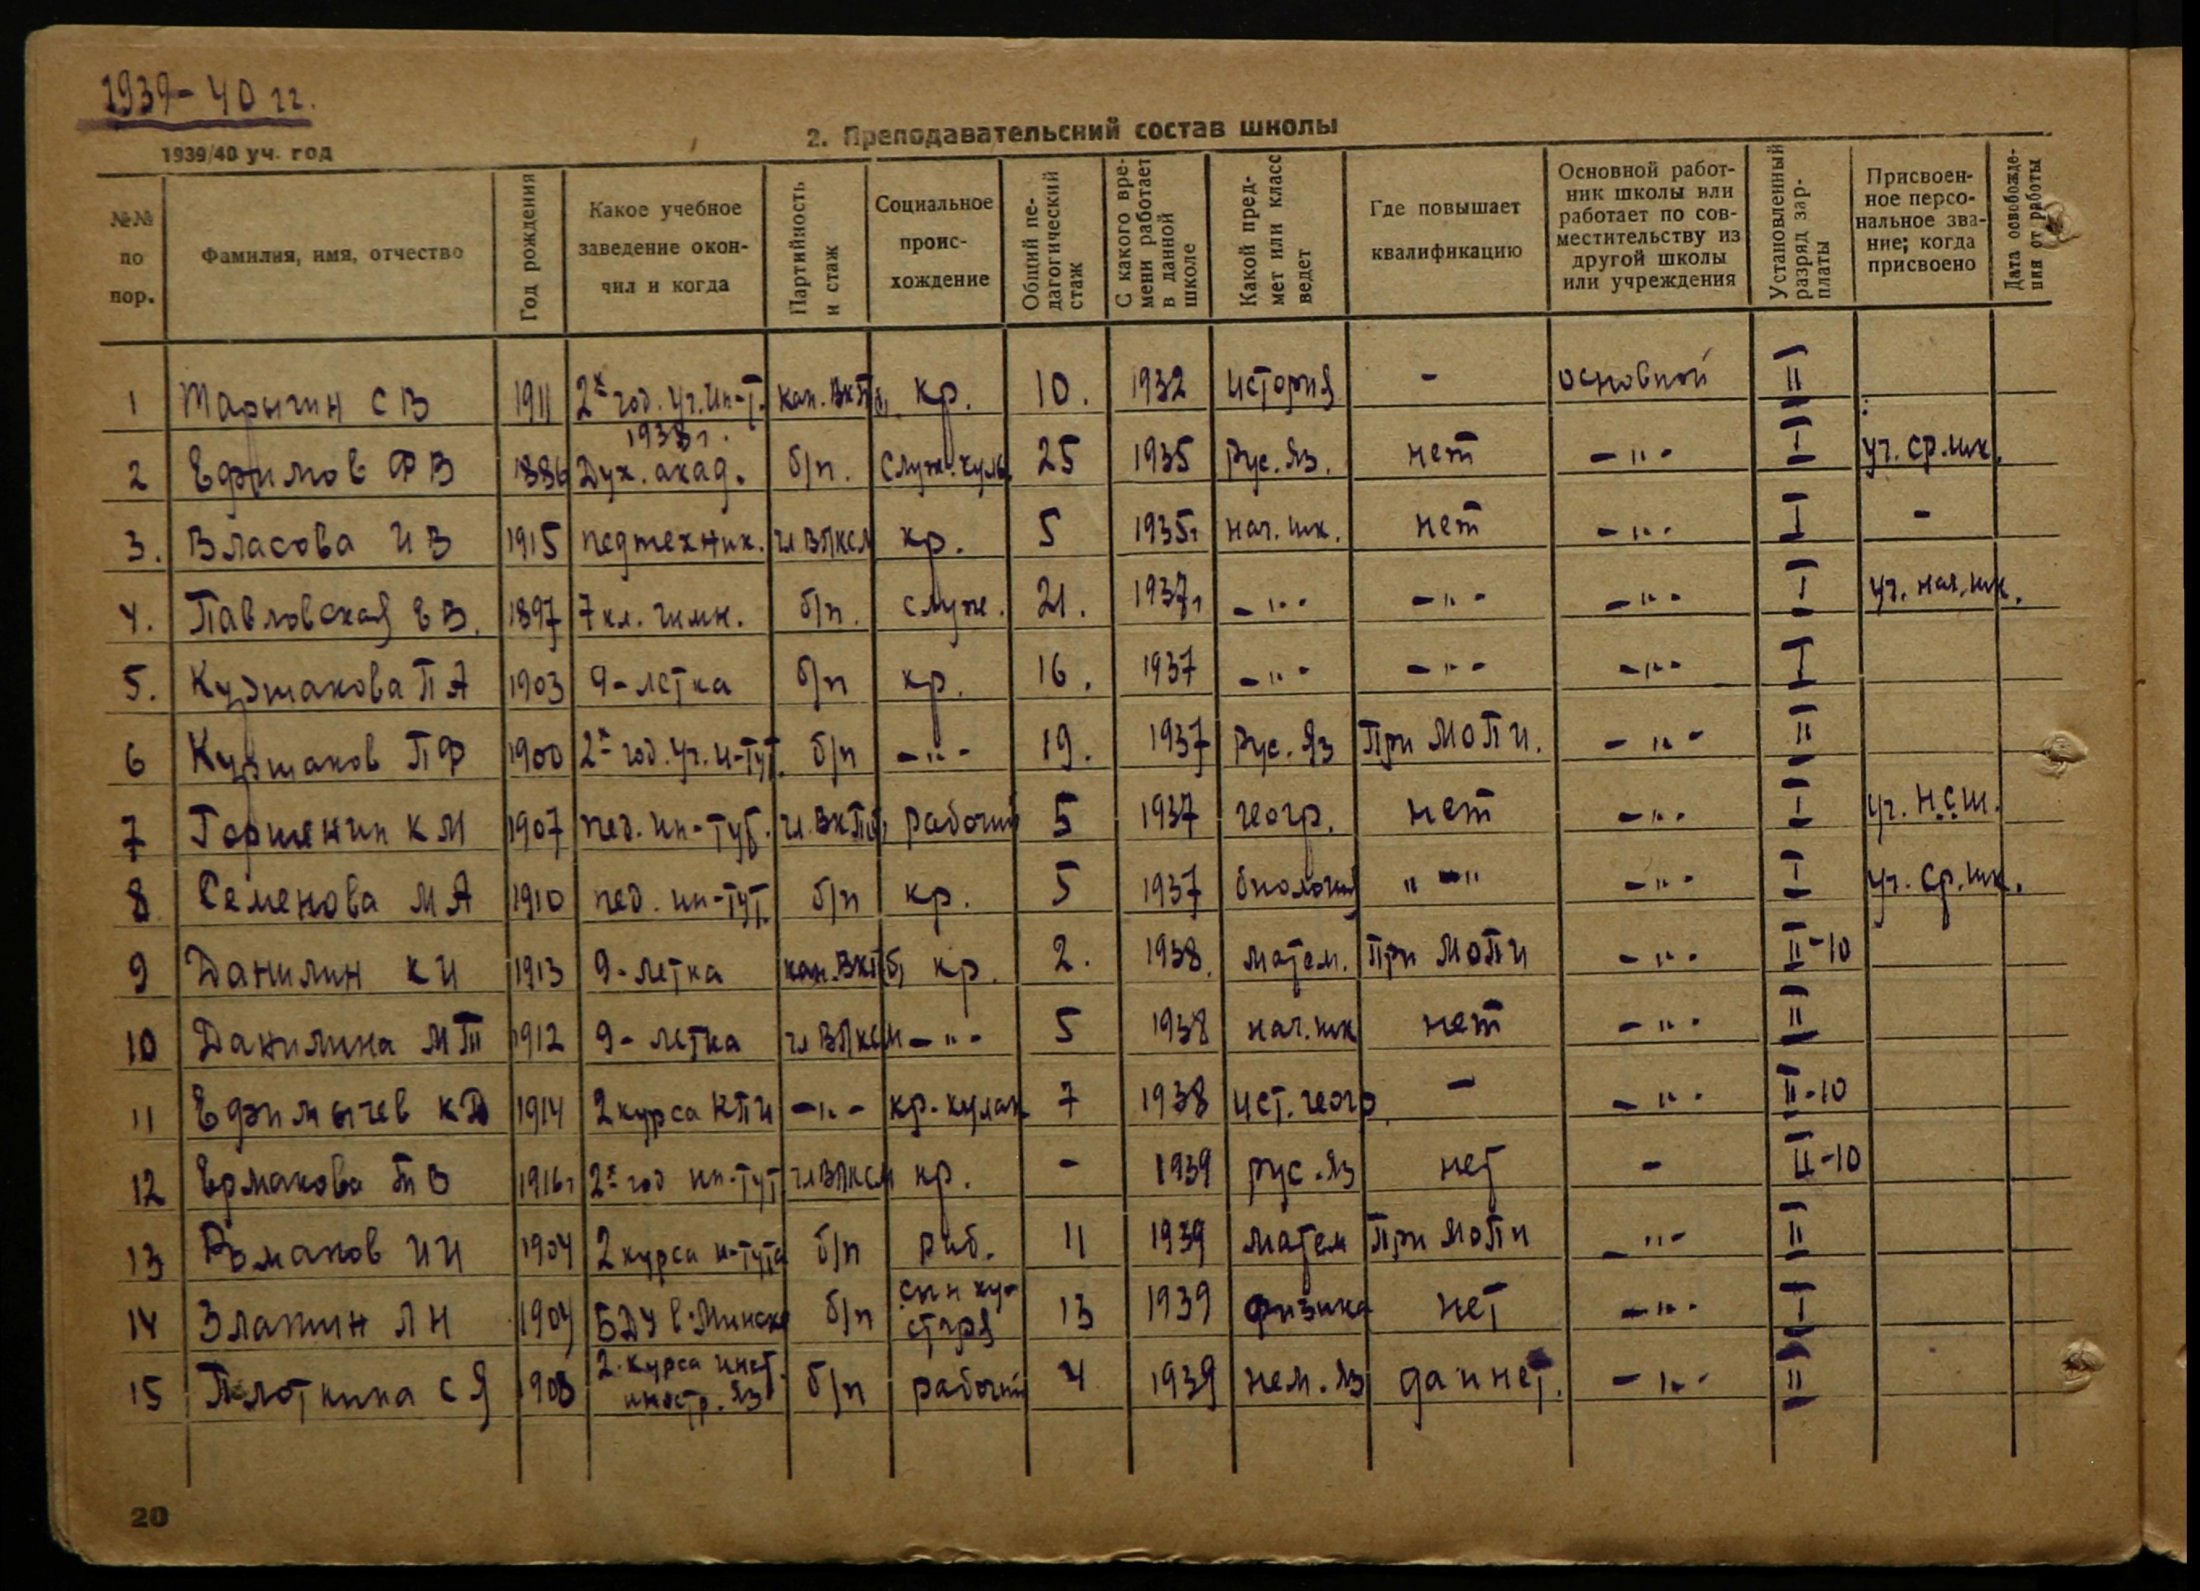 1939-40 гг.
2. Преподавательский состав школы
1939/40 уч. год
№№ по пор.
Фамилия, имя, отчество
Год рождения
Какое учебное заведение окончил и когда
Партийность и стаж
Социальное происхождение
Общий педагогический стаж
С какого времени работает в данной школе
Какой предмет или класс ведет
Где повышает квалификацию
Основной работник школы или работает по совместительству из другой школы или учреждения
Установленный разряд зарплаты
Присвоенное персональное звание; когда присвоено
Дата освобождения от работы
1 Марычин С В 1911 2х год. Уч. Ин-т. 1938г. кан. ВКПб, кр. 10. 1932 история - основной II
2 Ефимов Ф В 1886 Дух. акад. б/п. служ. куль. 25 1935 Рус. Яз. нет -"- I уч. ср. шк.
3. Власова И В 1915 педтехник. чл ВЛКСМ кр. 5 1935г нач. шк. нет -"- I -
4. Павловская Е В. 1897 7 кл. гимн. б/п. служ. 21. 1937г -"- -"- -"- I уч. нач. шк.
5. Куршакова П А 1903 9-летка б/п кр. 16. 1937 -"- -"- -"- I
6 Куршаков П Ф 1900 2х год. Уч. И-тут. б/п -"- 19. 1937 Рус. Яз При МОПИ. -"- II
7 Горшенин К М 1907 пед. ин-тут. чл. ВКПб, рабочий 5 1937 геогр. нет -"- I уч. НСШ.
8 Семенова М А 1910 пед. ин-тут. б/п кр. 5 1937 биология "-" -"- I уч. ср. шк.
9 Данилин К И 1913 9-летка кан. ВКПб, кр. 2. 1938. матем. При МОПИ -"- II-10
10 Данилина М Т 1912 9-летка чл ВЛКСМ -"- 5 1938 нач. шк нет -"- II
11 Ефимычев К Д 1914 2 курса КПИ -"- кр. кулак 7 1938 ист. геогр. - -"- II-10
12 Ермакова Т В 1916г 2х год ин-тут чл ВЛКСМ кр. - 1939 рус. Яз нет - II-10
13 Романов И И 1904 2 курса и-тута б/п раб. 11 1939 матем При МОПИ -"- II
14 Златин Л Н 1904 БДУ в Минске б/п сын кустаря 13 1939 физика нет -"- I
15 Плоткина С Я 1908 2 курса инст. иностр. Яз б/п рабочий 4 1939 нем. Яз да и нет. -"- II
20